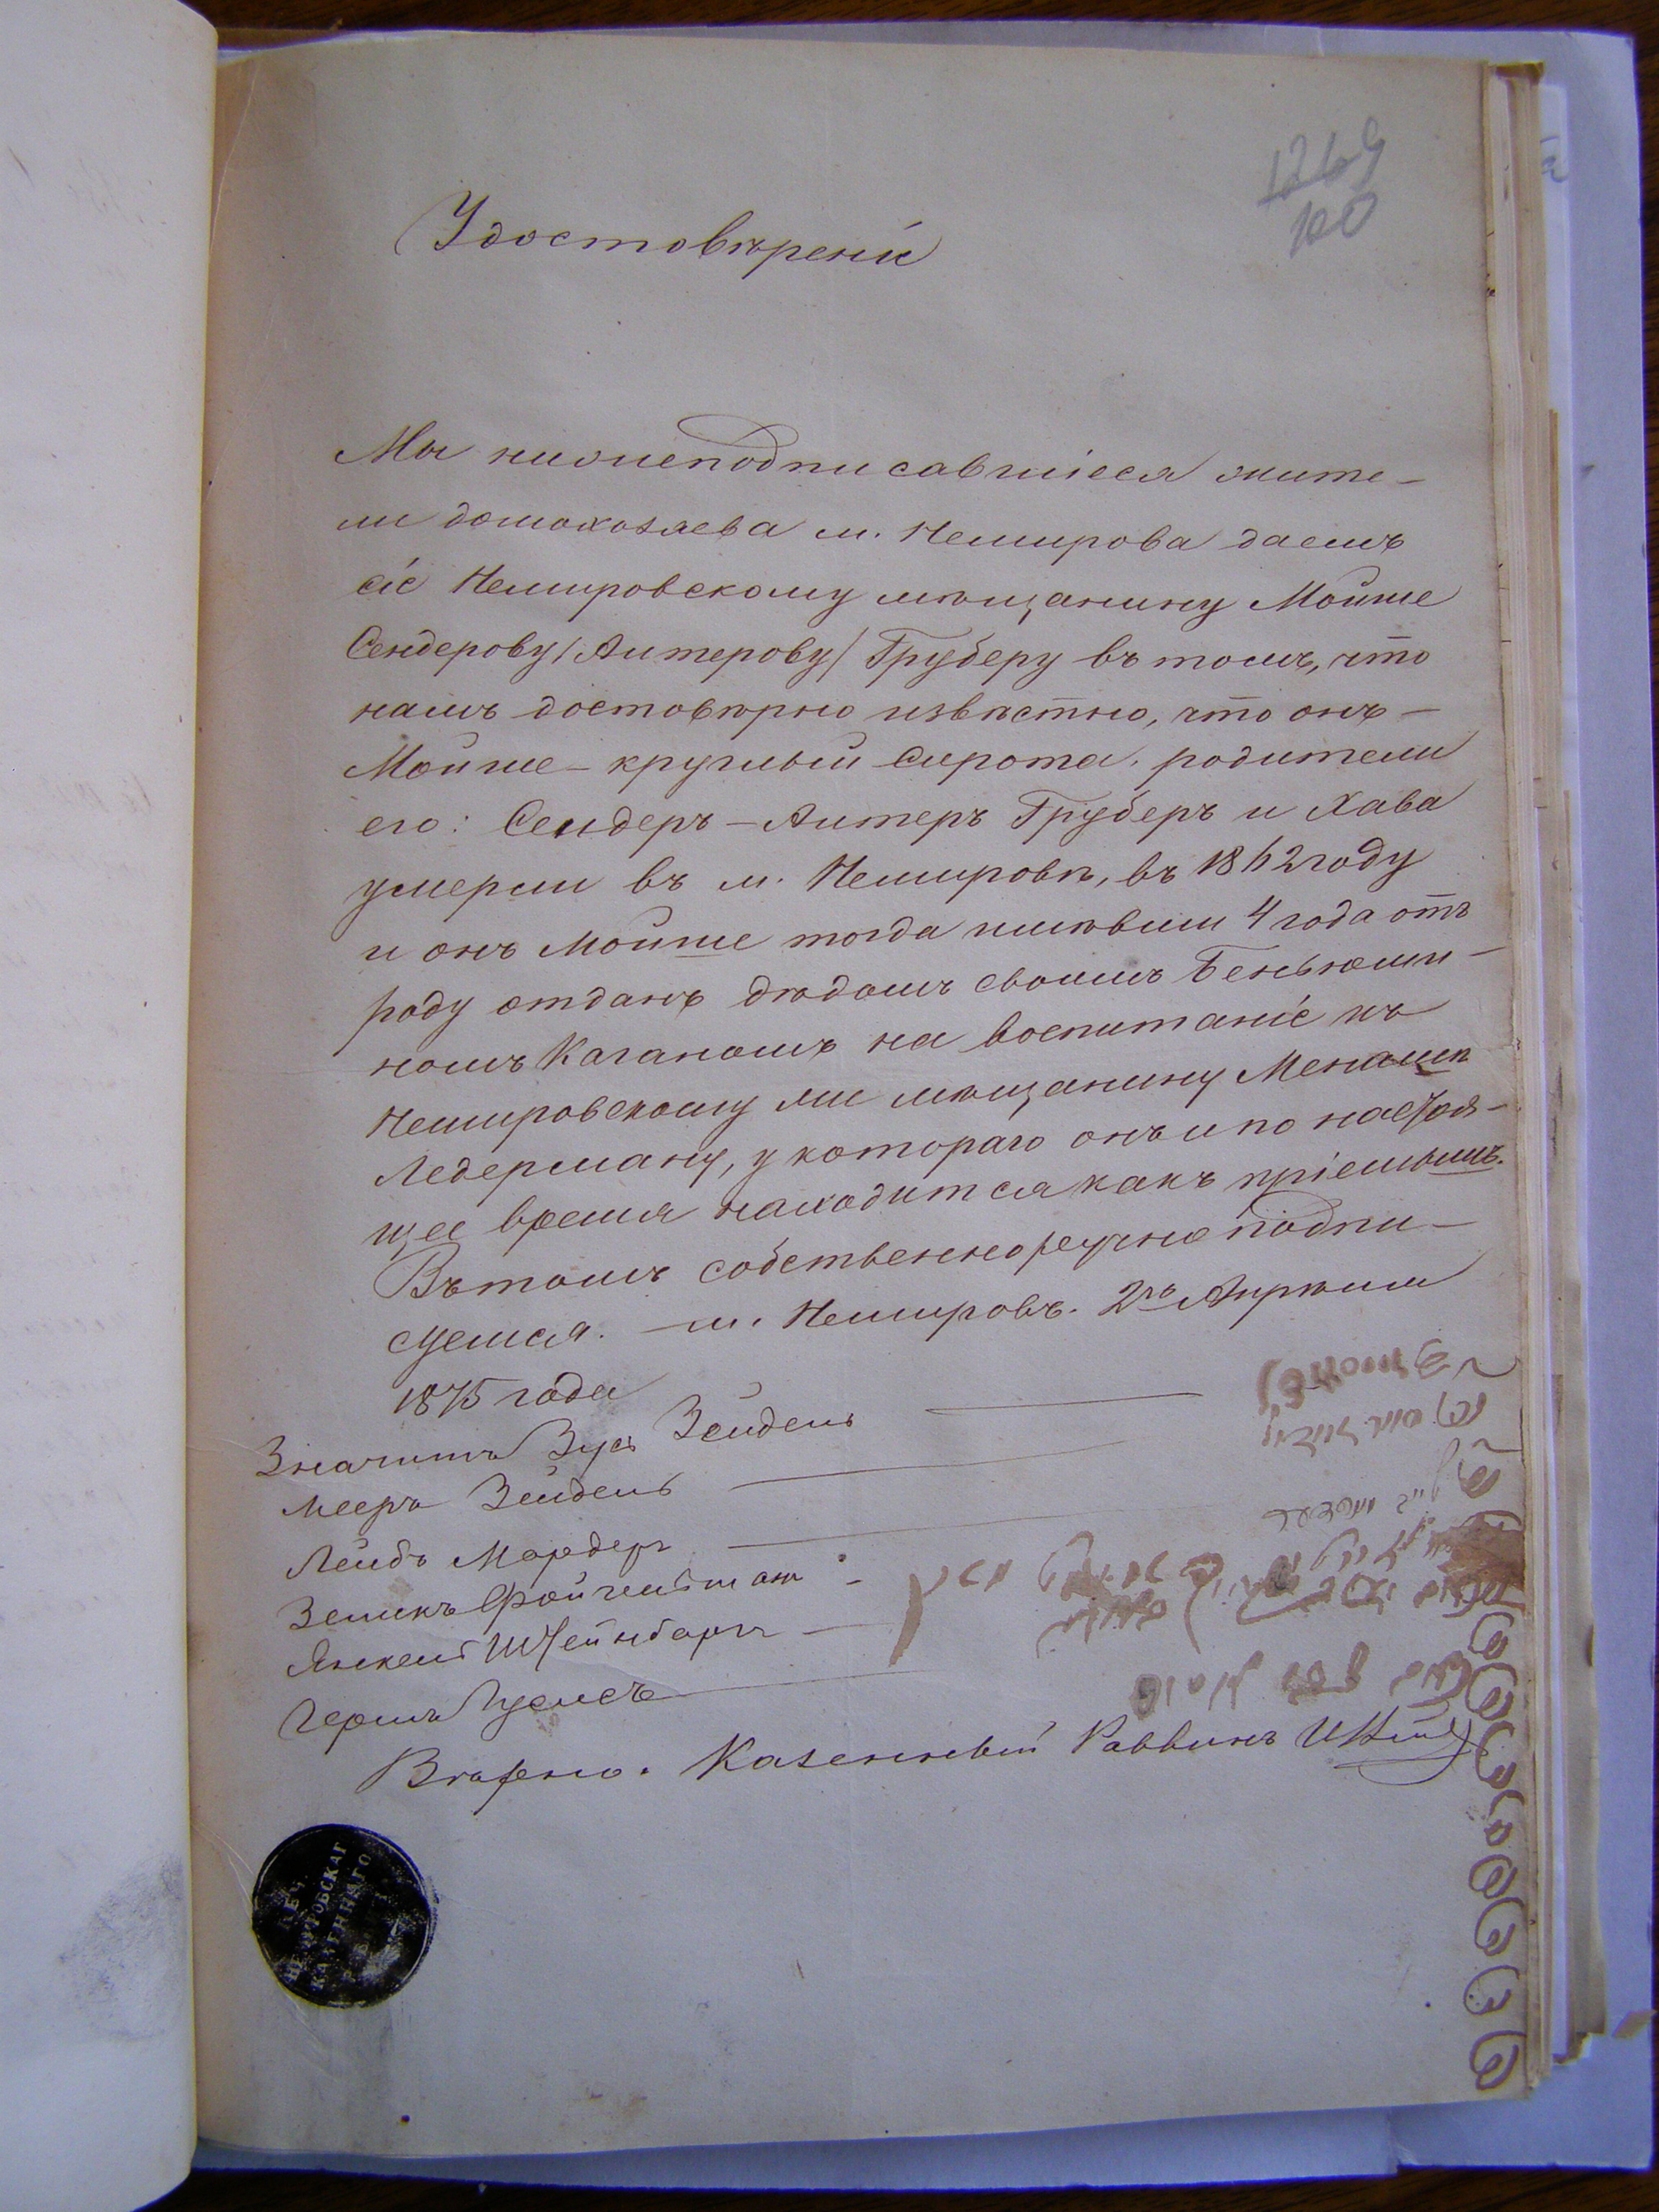 1269
100
Удостовѣреніе
Мы нижеподписавшіеся жите-
ли домохозяева м. Немирова даемъ
сіе Немировскому мѣщанину Мойше
Сендерову/Алтерову/ Груберу въ томъ, что
намъ достовѣрно извѣстно, что онъ-
Мойше-круглый сирота, родители
его: Сендеръ-Алтеръ Груберъ и Хава
умерли въ м. Немировѣ, въ 1862 году
и онъ Мойше тогда имѣвши 4 года отъ
роду отданъ дѣдомъ своимъ Беньюми-
номъ Каганомъ на воспитаніе къ
Немировскому ми мѣщанину Менашѣ
Ледерману, у котораго онъ и по настоя-
щее время находится какъ пріемышъ.
Въ томъ собственноручно подпи-
суемся. м. Немировъ. 2го Апрѣля
1875 года
Значитъ Зусь Зейдель
Мееръ Зейдель
Лейбъ Мардеръ
Зеликъ
Янкель Штейнбаргъ
Гершъ
Вѣрно. Казенный Раввинъ
НЕМИРОВСКАГ
КАЗЕННАГО